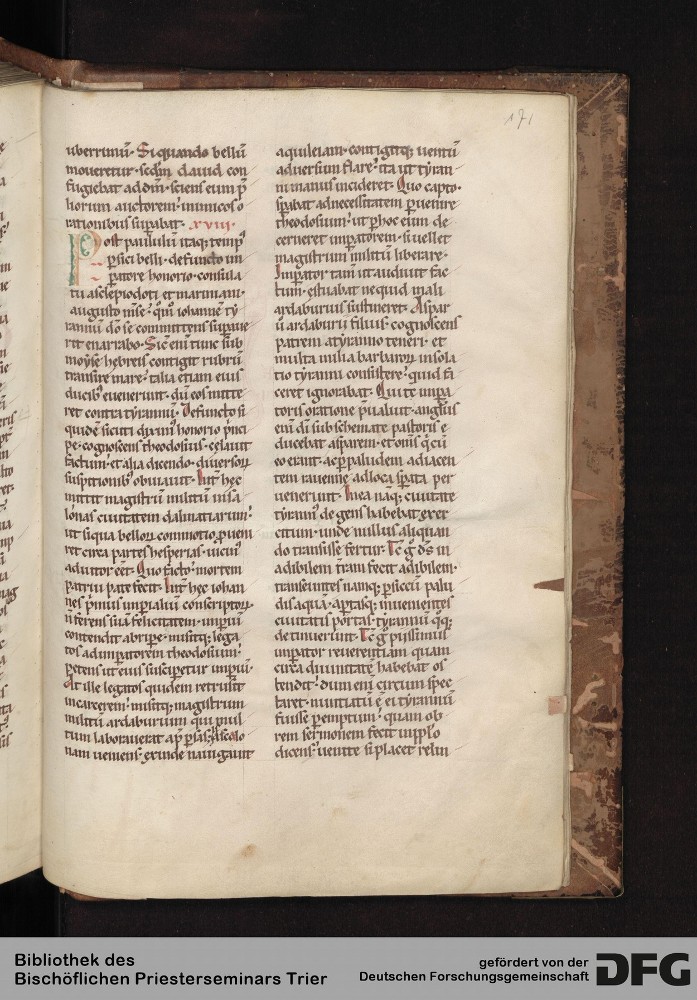 171
uberrimū· Siquando bellū
moueretur· sedm dauid con
fugiebat addm̄· sciens eum p̄
liorum auctorem· inimicos o
rationibus supabat· xviii·
Post paululū itaq; temp᾽
psici belli· defuncto im
patore honorio· consula
tu asclepiodoti et mariniani·
augusto mse· qm̄ iohannē ty
rannū do se committens supaue
rit enarrabo· Sic eni tunc sub
moyse hebreis contigit rubrū
transire mare· talia etiam eius
ducib; euenerunt· dū eos mitte
ret contra tyrannū· Defuncto si
quidē sicuti diximꝰ honorio pnci
pe· cognoscens theodosius· celauit
factum· et alia dicendo· diuersoꝝ
suspitionibꝰ obuiauit· Int hęc
mittit magistrū militū in sa
lonas ciuitatem dalmatiarum·
ut siqua belloꝝ commotio pueni
ret circa partes hesperias· uicinꝰ
adiutor eēt· Quo facto mortem
patrui patefecit· Int hęc iohan
nes pmus imperialiū conscriptoꝝ
n̄ ferens suā felicitatem· imperiū
contendit abripe· misitq; lega
tos ad imperatorem theodosium·
petens ut eius susciperetur imperiū·
At ille legatos quidem retrusit
in carcerem· misitq; magistrum
militū ardaburium qui mul
tum laborauerat ap psas· Is salo
nam ueniens· exinde nauigauit
aquileiam· contigitq; uentū
aduersum flare· ita ut tyran
ni manus incideret· Quo capto·
spabat ad necessitatem puenire
theodosium· ut p hoc eum de
cerneret imperatorem· si uellet
magistrum militū liberare·
Imperator tam̄ ut audiuit fac
tum· estuabat ne quid mali
ardaburius sustineret· Aspar
ū ardaburii filius· cognoscens
patrem a tyranno teneri· et
multa milia barbaroꝝ in sola
tio tyranni consistere· quid fa
ceret ignorabat· Qui te impa
toris oratione pualuit· anglus
eni di sub schemate pastoris e
ducebat asparem· et om̄s q̄ cū
eo erant· ac p paludem adiacen
tem rauenne ad loca spata per
uenerunt· Inea naq; ciuitate
tyrannꝰ degens habebat exer
citum· unde nullus aliquan
do transisse fertur· Tc̄ g̊ ds̄ in
adibilem tram fecit adibilem·
transeuntes namq; p siccū palu
dis aquā· aptasq; inuenientes
ciuitatis portas· tyrannū q̊q;
detinuerunt· Tc̄ g̊ piissimus
imperator reuerentiam quam
circa diuinitatē habebat os
tendit· dum eni circum spec
taret· nuntiatū ē ei tyrannū
fuisse pemptum· quam ob
rem sermonem fecit in ppło
dicens· uenite si placet relin
Bibliothek des
Bischöflichen Priesterseminars Trier
gefördert von der
Deutschen Forschungsgemeinschaft
DFG